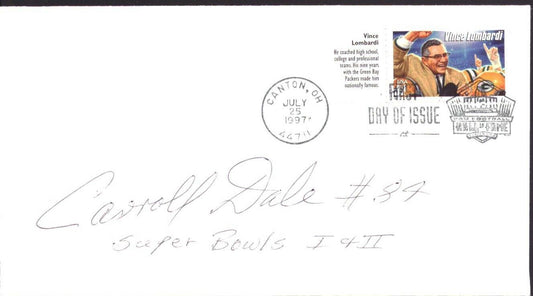 Vince
Lombardi
He coached high school,
college and professional
teams. His nine years
with the Green Bay
Packers made him
nationally famous.
Vince Lombardi
CANTON, OH
JULY
25
1997
44711
FIRST
DAY OF ISSUE
PRO FOOTBALL
HALL OF FAME
Carroll Dale #84
Super Bowls I & II